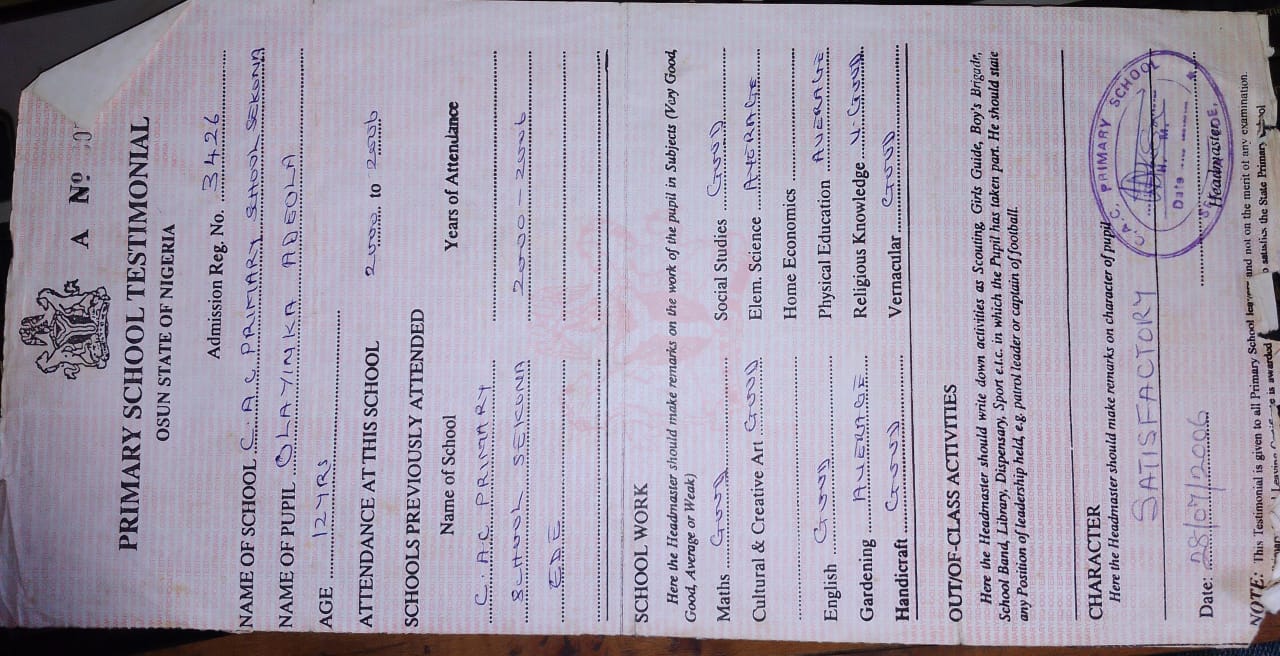 A Nº
PRIMARY SCHOOL TESTIMONIAL
OSUN STATE OF NIGERIA
Admission Reg. No. 3426
NAME OF SCHOOL C. A. C. PRIMARY SHOOL SEKONA
NAME OF PUPIL OLAYINKA ADEOLA
AGE 12YRS
ATTENDANCE AT THIS SCHOOL 2000 to 2006
SCHOOLS PREVIOUSLY ATTENDED
Name of School Years of Attendance
C. A.C PRIMARY
SCHOOL SEKONA 2000-2006
EDE
SCHOOL WORK
Here the Headmaster should make remarks on the work of the pupil in Subjects (Very Good,
Good, Average or Weak)
Maths GOOD Social Studies GOOD
Cultural & Creative Art GOOD Elem. Science AVERAGE
Home Economics
English GOOD Physical Education AVERAGE
Gardening AVERAGE Religious Knowledge V. GOOD
Handicraft GOOD Vernacular GOOD
OUT/OF-CLASS ACTIVITIES
Here the Headmaster should write down activities as Scouting, Girls Guide, Boy's Brigade,
School Band, Library, Dispensary, Sport e.t.c. in which the Pupil has taken part. He should state
any Position of leadership held, e.g. patrol leader or captain of football.
CHARACTER
Here the Headmaster should make remarks on character of pupil
SATISFACTORY
C.A.C. PRIMARY SCHOOL
H. M.
Date
Date: 28/07/2006 Headmaster
NOTE: This Testimonial is given to all Primary School and not on the merit of any examination.
is awarded satisfies the State Primary School